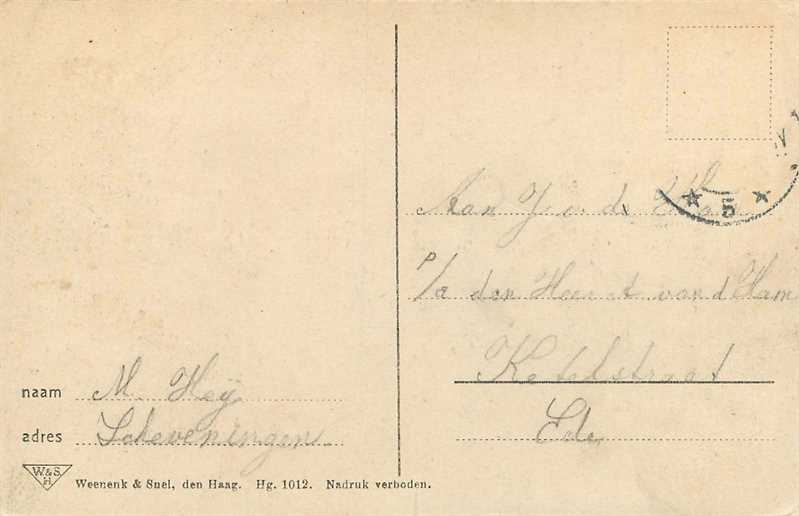 naam M. Heÿ
adres Scheveningen
W&S.
H
Weenenk & Snel, den Haag. Hg. 1012. Nadruk verboden.
5
Aan J v d Ham
P/a den Heer A van d Ham
Ketelstraat
Ede